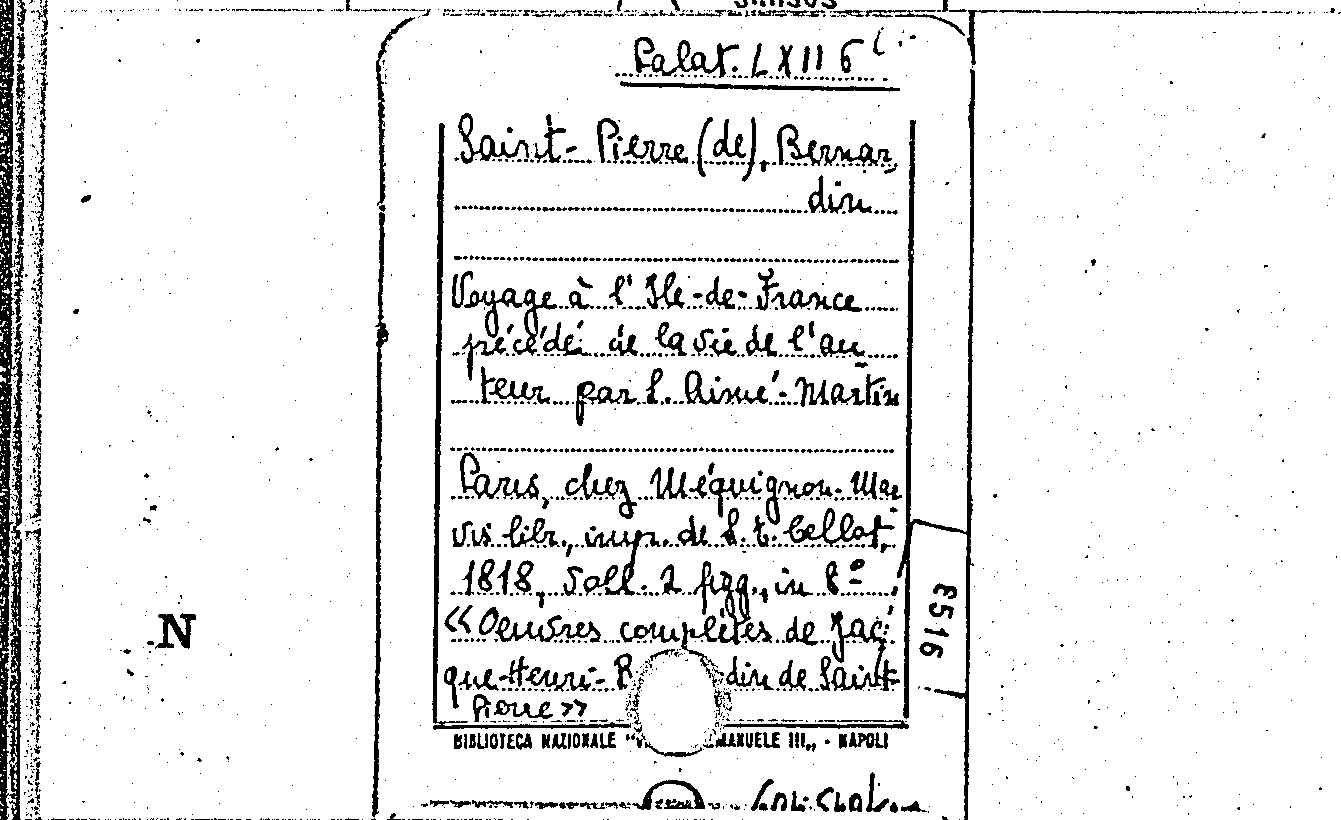 Palat. LXII 6
Saint-Pierre (de), Bernar,
din
Voyage à l'Ile-de-France
précédé de la vie de l'au
teur par L. Aimé-Martin
Paris, chez Méquignon-Mar
vis libr., impr. de L. T. Cellot,
1818, voll. 2 figg., in 8º
«Oeuvres complètes de Jac
que-Henri-B din de Saint-
Pierre»
BIBLIOTECA NAZIONALE "V MANUELE III„ - NAPOLI
N